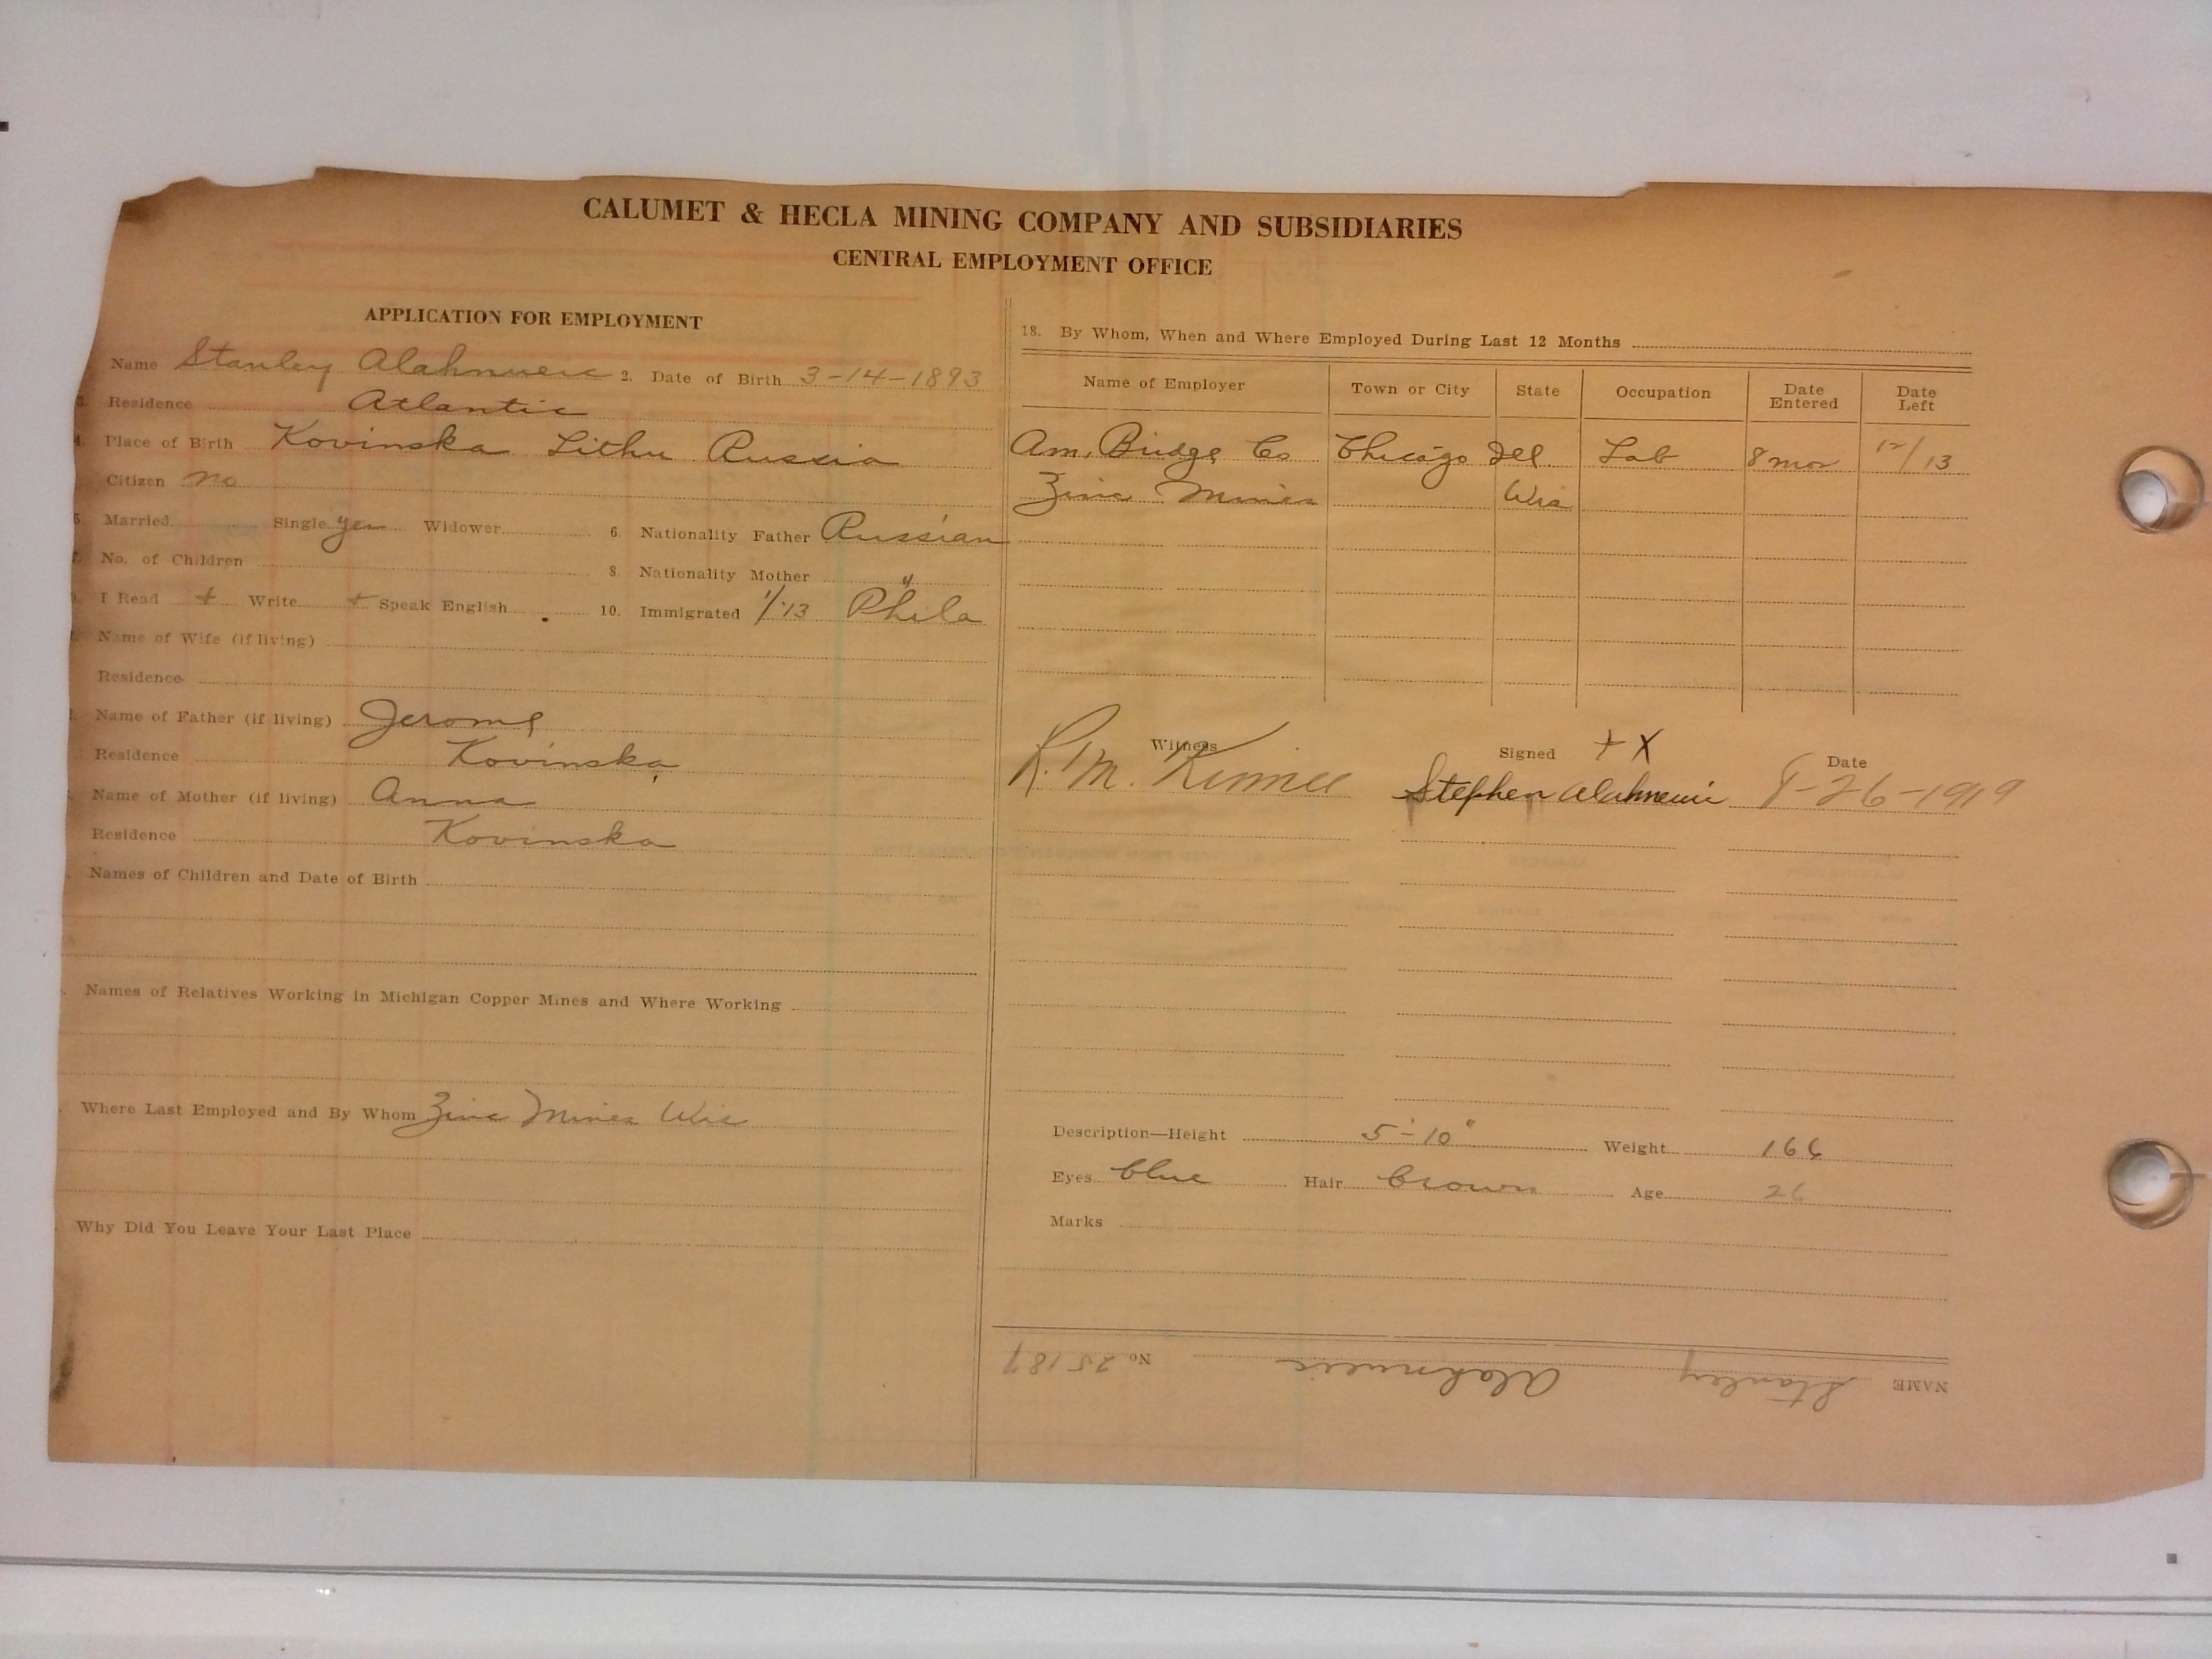 CALUMET & HECLA MINING COMPANY AND SUBSIDIARIES
CENTRAL EMPLOYMENT OFFICE
APPLICATION FOR EMPLOYMENT
Name Stanley Alahnweic 2. Date of Birth 3-14-1893
3. Residence Atlantic
4. Place of Birth Kovinska Lithu Russia
Citizen no
5. Married Single yes Widower 6. Nationality Father Russian
7. No. of Children 8 Nationality Mother "
9. I Read + Write + Speak English 10. Immigrated 1/13 Phila
Name of Wife (if living)
Residence
Name of Father (if living) Jerome
Residence Kovinska
Name of Mother (if living) Anna
Residence Kovinska
Names of Children and Date of Birth
Names of Relatives Working in Michigan Copper Mines and Where Working
Where Last Employed and By Whom Zinc Mines Wis
Why Did You Leave Your Last Place
18. By Whom, When and Where Employed During Last 12 Months
Name of Employer Town or City State Occupation Date Entered Date Left
Am. Bridge Co Chicago Ill. Lab 8 mos 12/13
Zinc Mines Wis
Witness Signed + X Date
R. M. Stephen 8-26-1919
Description—Height 5'-10" Weight 166
Eyes blue Hair brown Age 26
Marks
NAME Stanley Alahnweic No 25187